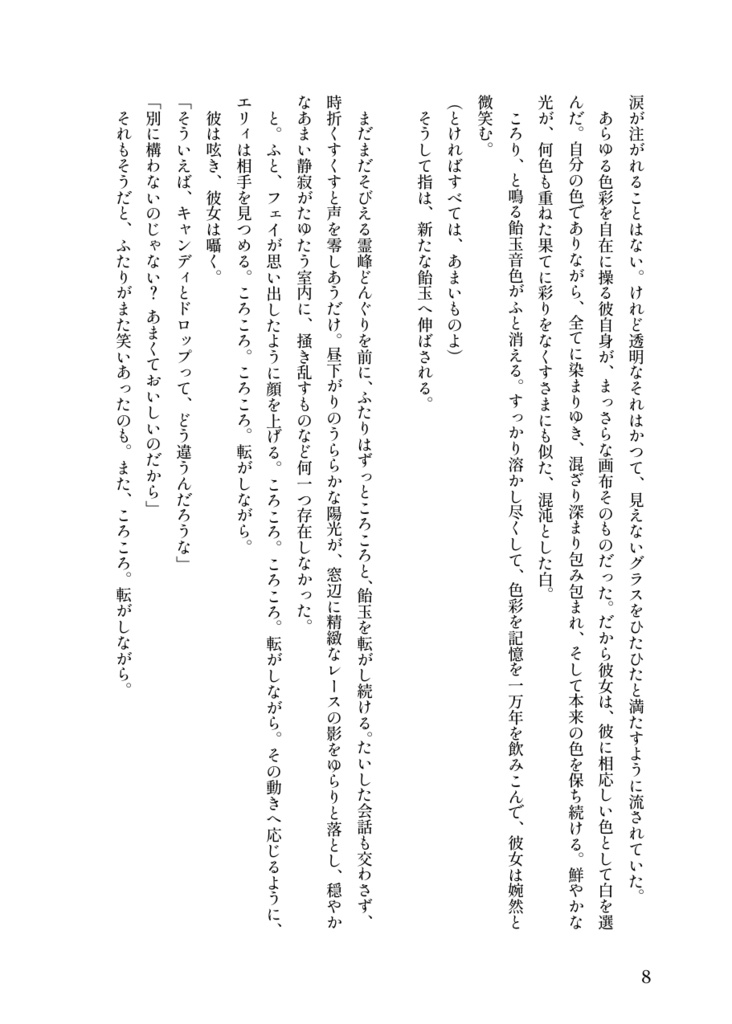 涙が注がれることはない。けれど透明なそれはかつて、見えないグラスをひたひたと満たすように流されていた。
あらゆる色彩を自在に操る彼自身が、まっさらな画布そのものだった。だから彼女は、彼に相応しい色として白を選
んだ。自分の色でありながら、全てに染まりゆき、混ざり深まり包み包まれ、そして本来の色を保ち続ける。鮮やかな
光が、何色も重ねた果てに彩りをなくすさまにも似た、混沌とした白。
ころり、と鳴る飴玉音色がふと消える。すっかり溶かし尽くして、色彩を記憶を一万年を飲みこんで、彼女は婉然と
微笑む。
(とければすべては、あまいものよ)
そうして指は、新たな飴玉へ伸ばされる。
まだまだそびえる霊峰どんぐりを前に、ふたりはずっところころと、飴玉を転がし続ける。たいした会話も交わさず、
時折くすくすと声を零しあうだけ。昼下がりのうららかな陽光が、窓辺に精緻なレースの影をゆらりと落とし、穏やか
なあまい静寂がたゆたう室内に、掻き乱すものなど何一つ存在しなかった。
と。ふと、フェイが思い出したように顔を上げる。ころころ。ころころ。転がしながら。その動きへ応じるように、
エリィは相手を見つめる。ころころ。ころころ。転がしながら。
彼は呟き、彼女は囁く。
「そういえば、キャンディとドロップって、どう違うんだろうな」
「別に構わないのじゃない？ あまくておいしいのだから」
それもそうだと、ふたりがまた笑いあったのも。また、ころころ。転がしながら。
8